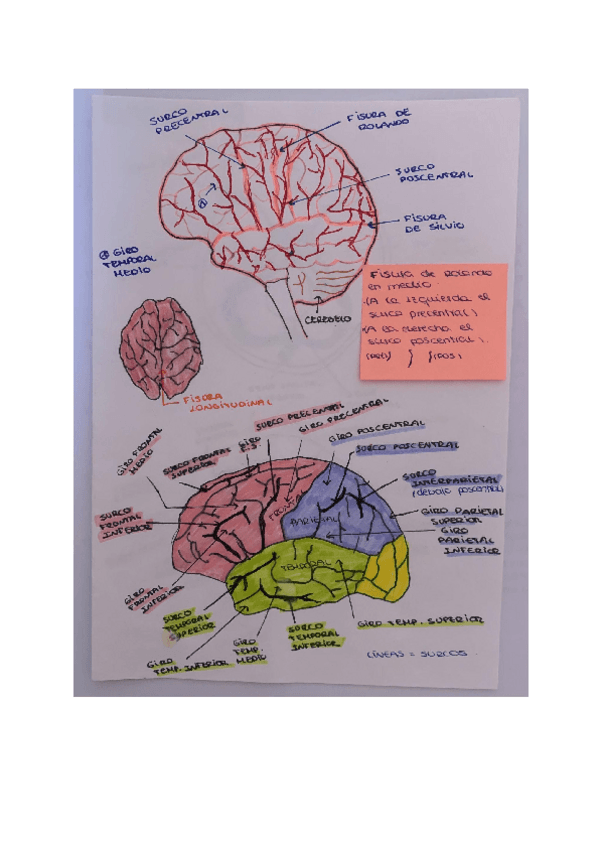 SURCO
PRECENTRAL
FISURA DE
ROLANDO
SURCO
POSCENTRAL
FISURA
DE SILVIO
GIRO
TEMPORAL
MEDIO
CEREBELO
FISURA
LONGITUDINAL
Fisura de Rolando
en medio.
(A la izquierda el
surco precentral)
(A la derecha el
surco poscentral).
SURCO PRECENTRAL
GIRO PRECENTRAL
GIRO
F.S.
GIRO POSCENTRAL
SURCO POSCENTRAL
GIRO FRONTAL
MEDIO
SURCO FRONTAL
SUPERIOR
SURCO
INTERPARIETAL
(debajo poscentral)
SURCO
FRONTAL
INFERIOR
FRONTAL
PARIETAL
GIRO PARIETAL
SUPERIOR
GIRO
PARIETAL
INFERIOR
TEMPORAL
GIRO
FRONTAL
INFERIOR
SURCO
TEMPORAL
SUPERIOR
GIRO TEMP. SUPERIOR
GIRO
TEMP. INFERIOR
GIRO
TEMP.
MEDIO
SURCO
TEMPORAL
INFERIOR
LÍNEAS = SURCOS.